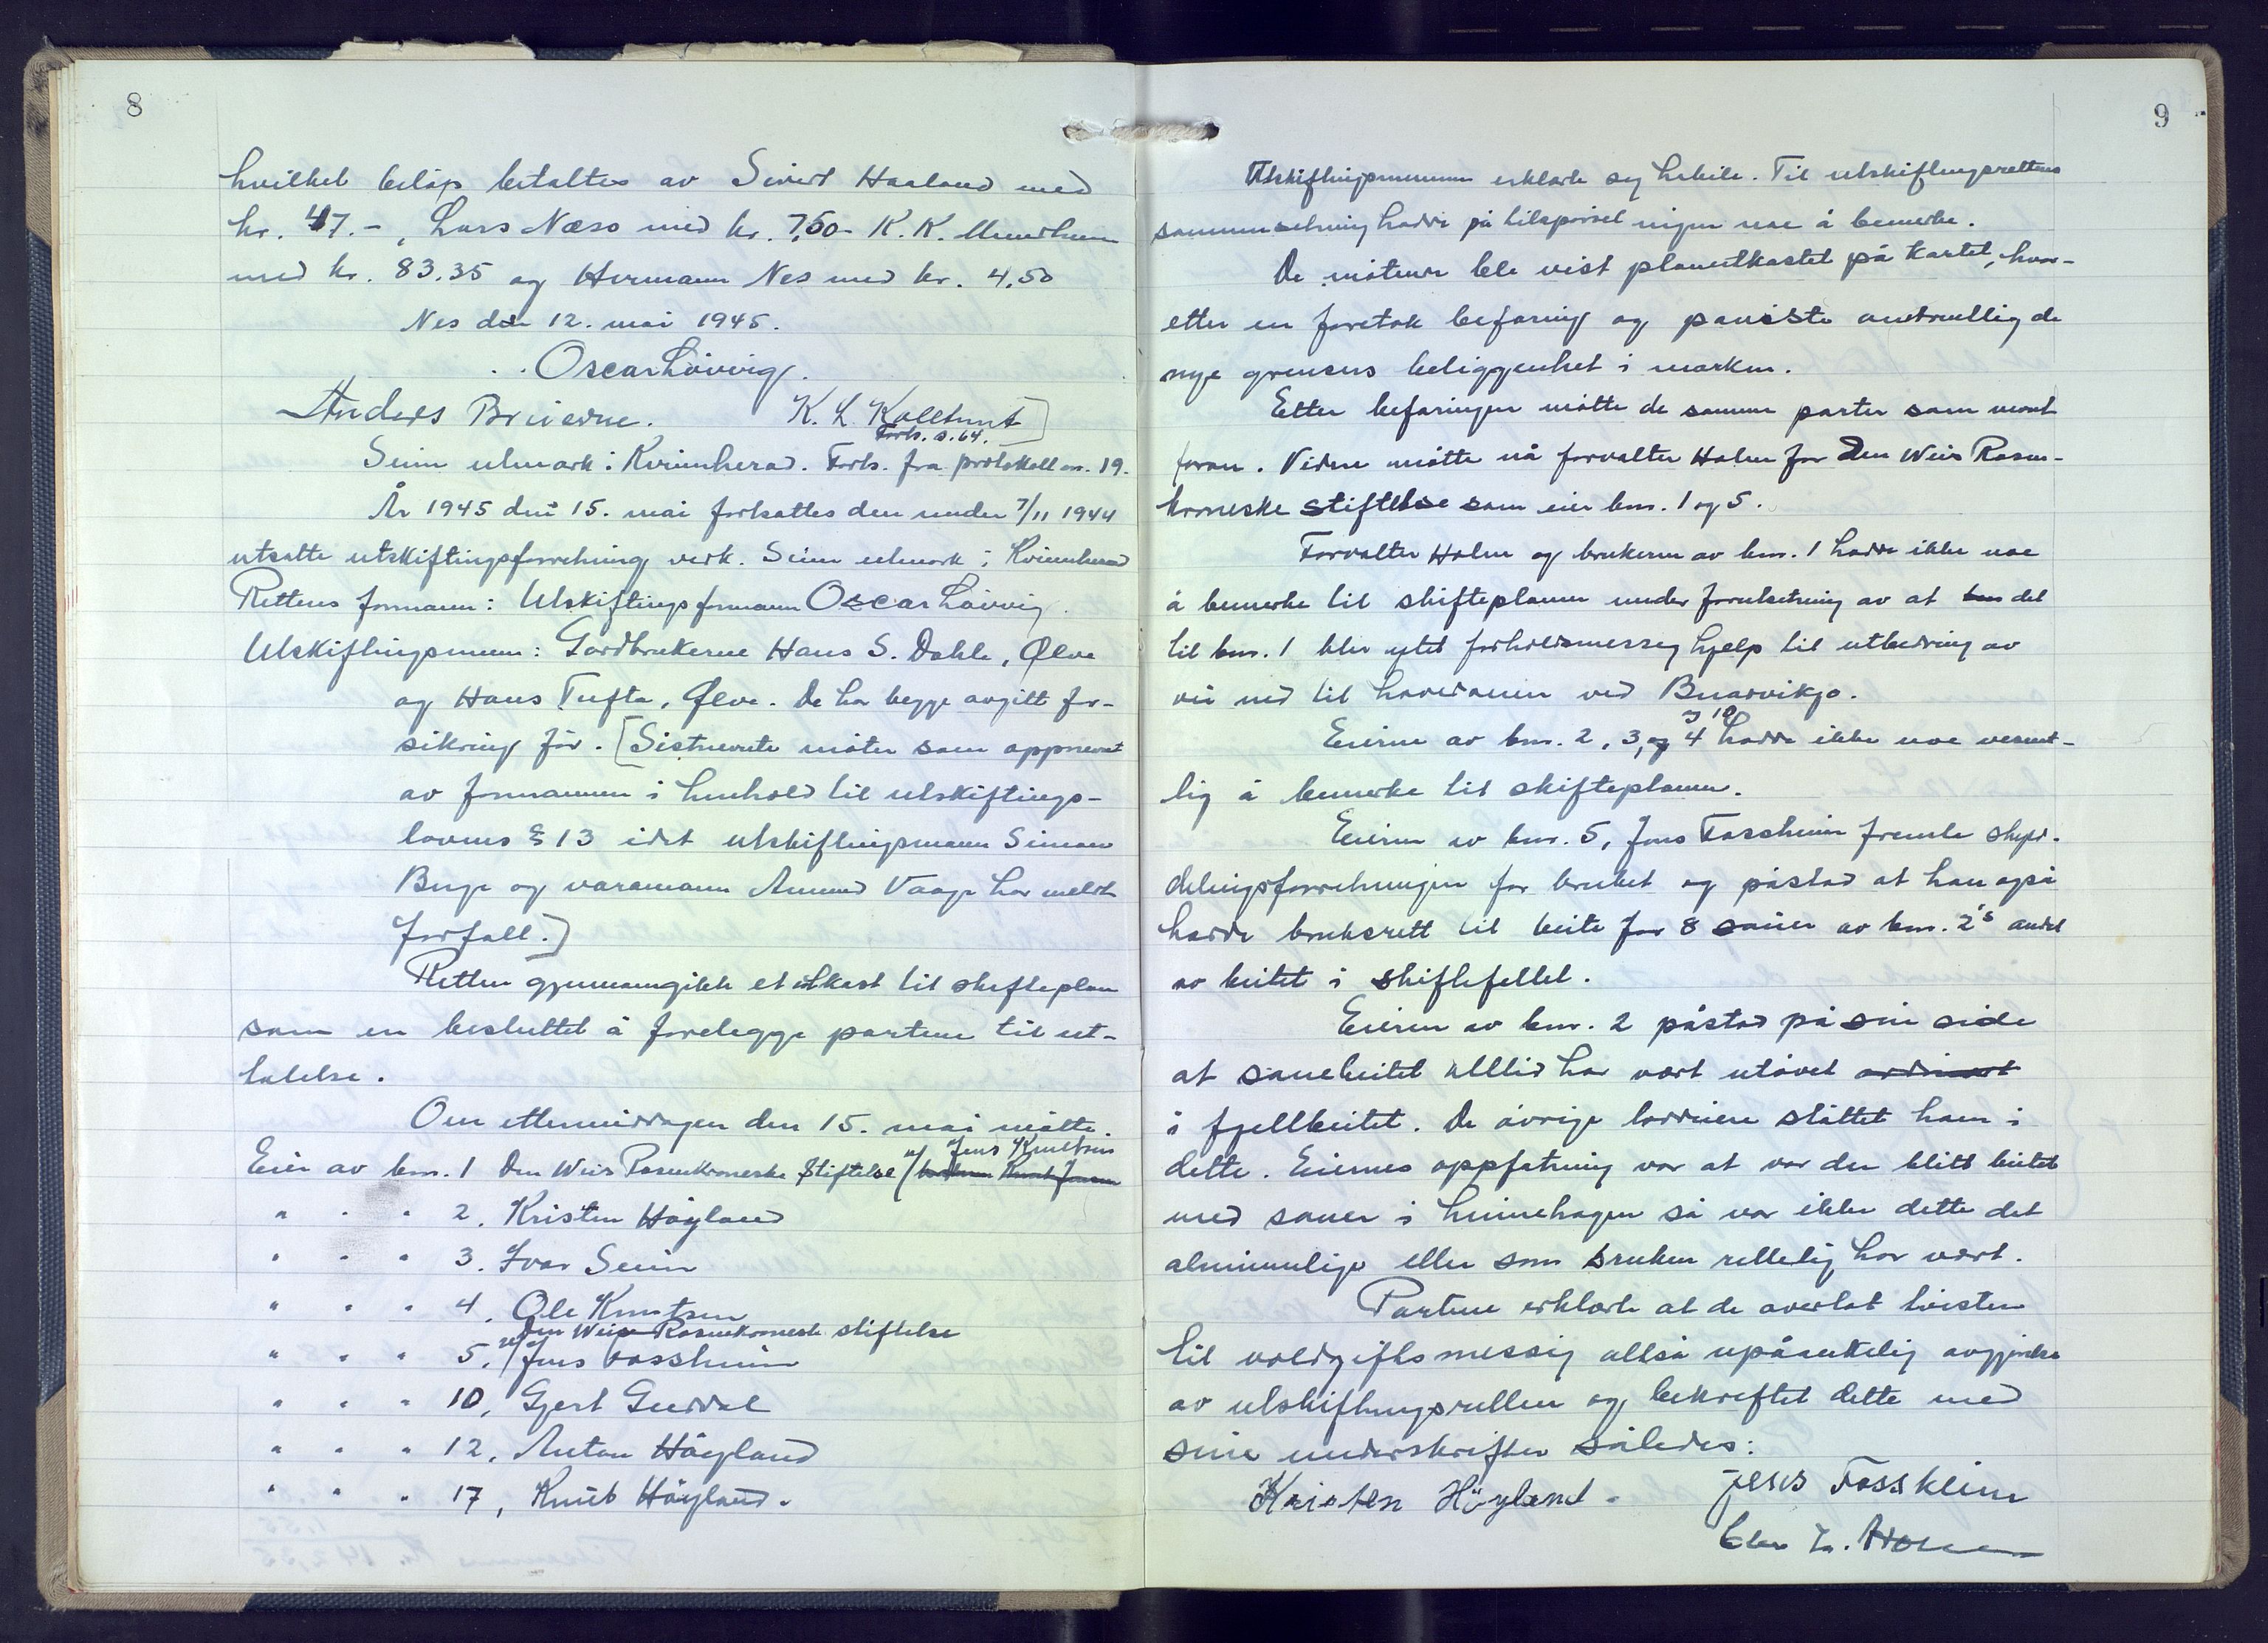 8
hvilket beløp betaltes av Sivert Haaland med
kr. 47.-, Lars Næss med kr. 7,50 - K. K. Mundheim
med kr. 83.35 og Hermann Nes med kr. 4,50
Nes den 12. mai 1945.
Oscar Løvvig.
Anders K. L.
Forts. s. 64.
Seim utmark i Kvinnherad. Forts. fra protokoll nr. 19.
År 1945 den 15. mai fortsattes den under 7/11 1944
utsatte utskiftingsforretning vedk. Seim utmark i Kvinnherad
Rettens formann: Utskiftingsformann Oscar Løvvig.
Utskiftingsmenn: Gardbrukerne Hans S. Dahle, Ølve
og Hans Tufta, Ølve. De har begge avgitt for-
sikring før. [Sistnevnte møter som oppnevnt
av formannen i henhold til utskiftings-
lovens § 13 idet utskiftingsmann Simon
Buge og varamann Amund Vaage har meldt
forfall.]
Retten gjennomgikk et utkast til skifteplan
som en besluttet å forelegge partene til ut-
talelse.
Om ettermiddagen den 15. mai møtte.
v/ Jens Knutsen
Eier av bnr. 1 Den Weis Rosenkroneske Stiftelse
" " " 2. Kristen Høyland
" " " 3. Ivar Seim
" " " 4. Ole Knutsen
Den Weis Rosenkroneske stiftelse
" " " 5. v/ Jens Fossheim
" " " 10, Gjert Guddal
" " " 12, Anton Høyland
" " " 17, Knut Høyland.
9
Utskiftingsmennene erklærte seg habile. Til utskiftingsrettens
sammensetning hadde på tilspørsel ingen noe å bemerke.
De møtende ble vist planutkastet på kartet, hvor-
etter en foretok befaring og påviste omtrentlig de
nye grensers beliggenhet i marken.
Etter befaringen møtte de samme parter som nevnt
foran. Videre møtte nå forvalter Holm for Den Weis Rosen-
kroneske stiftelse som eier bnr. 1 og 5.
Forvalter Holm og brukeren av bnr. 1 hadde ikke noe
å bemerke til skifteplanen under forutsetning av at det
til bnr. 1 blir ytet forholdsmessig hjelp til utbedring av
vei ned til hovedveien ved Buarvikjo.
og 10
Eierne av bnr. 2, 3, og 4 hadde ikke noe vesent-
lig å bemerke til skifteplanen.
Eieren av bnr. 5, Jens Fossheim fremla skyld-
delingsforretningen for bruket og påstod at han også
hadde bruksrett til beite for 8 sauer av bnr. 2's andel
av beitet i skiftefeltet.
Eieren av bnr. 2 påstod på sin side
at sauebeitet alltid har vært utøvet ordinært
i fjellbeitet. De øvrige loddeiere støttet ham i
dette. Eiernes oppfatning var at var der blitt beitet
med sauer i heimehagen så var ikke dette det
alminnelige eller som bruken rettelig har vært.
Partene erklærte at de overlot tvisten
til voldgiftsmessig altså upåankelig avgjørelse
av utskiftingsretten og bekreftet dette med
sine underskrifter således:
Kristen Høyland. Jens Fossheim